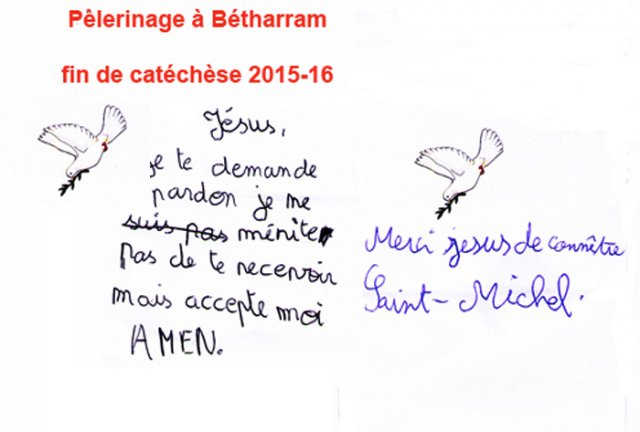 Pèlerinage à Bétharram
fin de catéchèse 2015-16
Jésus,
je te demande
pardon je me
suis pas mérite
pas de te recevoir
mais accepte moi
AMEN.
Merci jesus de connêtre
Saint-Michel.